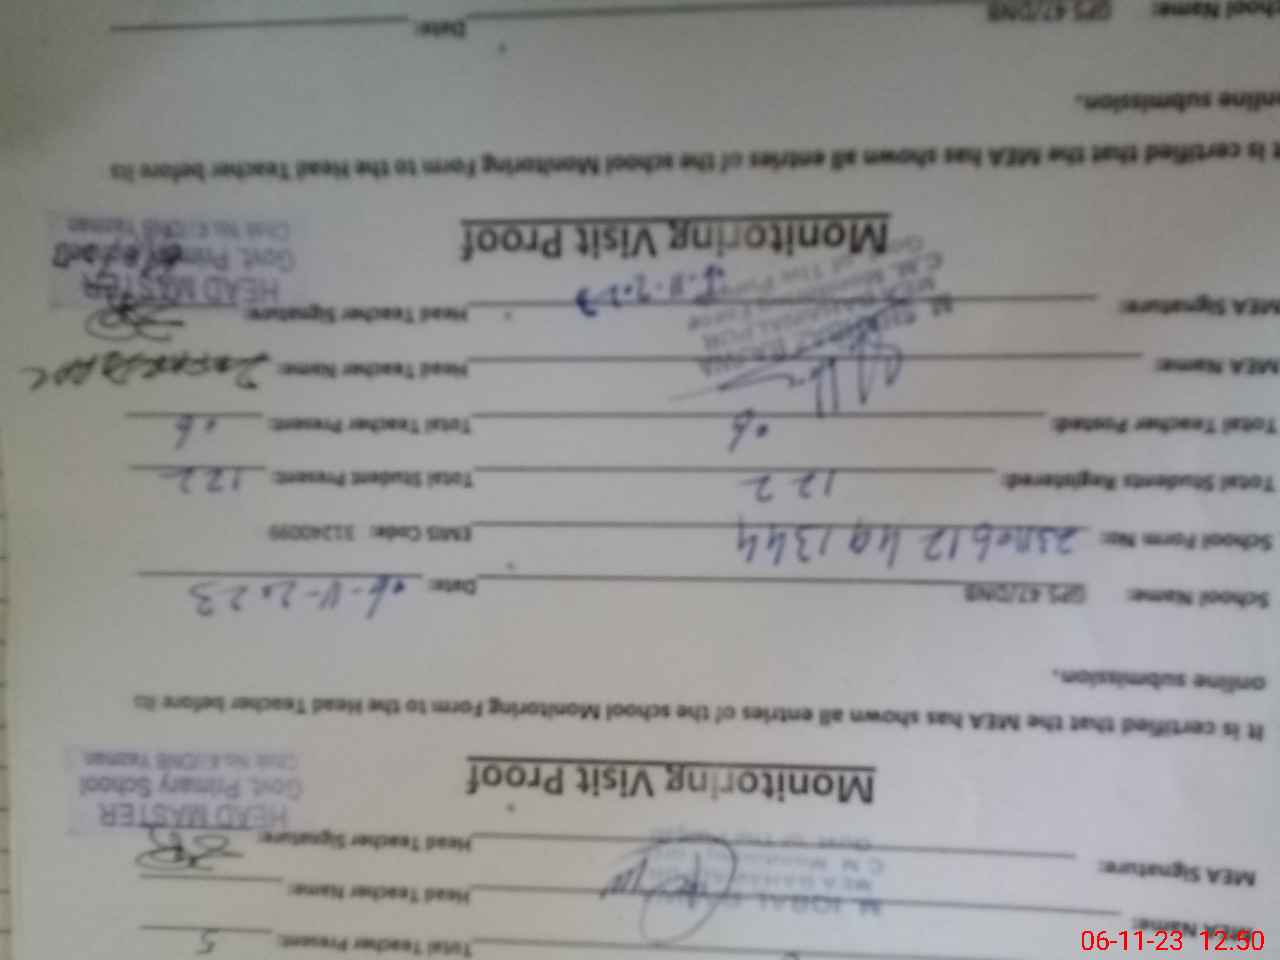 Total Teacher Present: 5
MEA Name: Head Teacher Name:
MEA Signature: Head Teacher Signature:
HEAD MASTER
Govt. Primary School
Chak No.47/DNB Yazman
Monitoring Visit Proof
It is certified that the MEA has shown all entries of the school Monitoring Form to the Head Teacher before its
online submission.
School Name: GPS 47/DNB Date: 06-11-2023
School Form No: 23110612491344 EMIS Code: 31240099
Total Students Registered: 122 Total Student Present: 122
Total Teacher Posted: 06 Total Teacher Present: 06
MEA Name: Head Teacher Name:
MEA Signature: Head Teacher Signature:
HEAD MASTER
Govt. Primary
Chak No.47/DNB Yazman
Monitoring Visit Proof
It is certified that the MEA has shown all entries of the school Monitoring Form to the Head Teacher before its
online submission.
School Name: GPS 47/DNB Date:
06-11-23 12:50